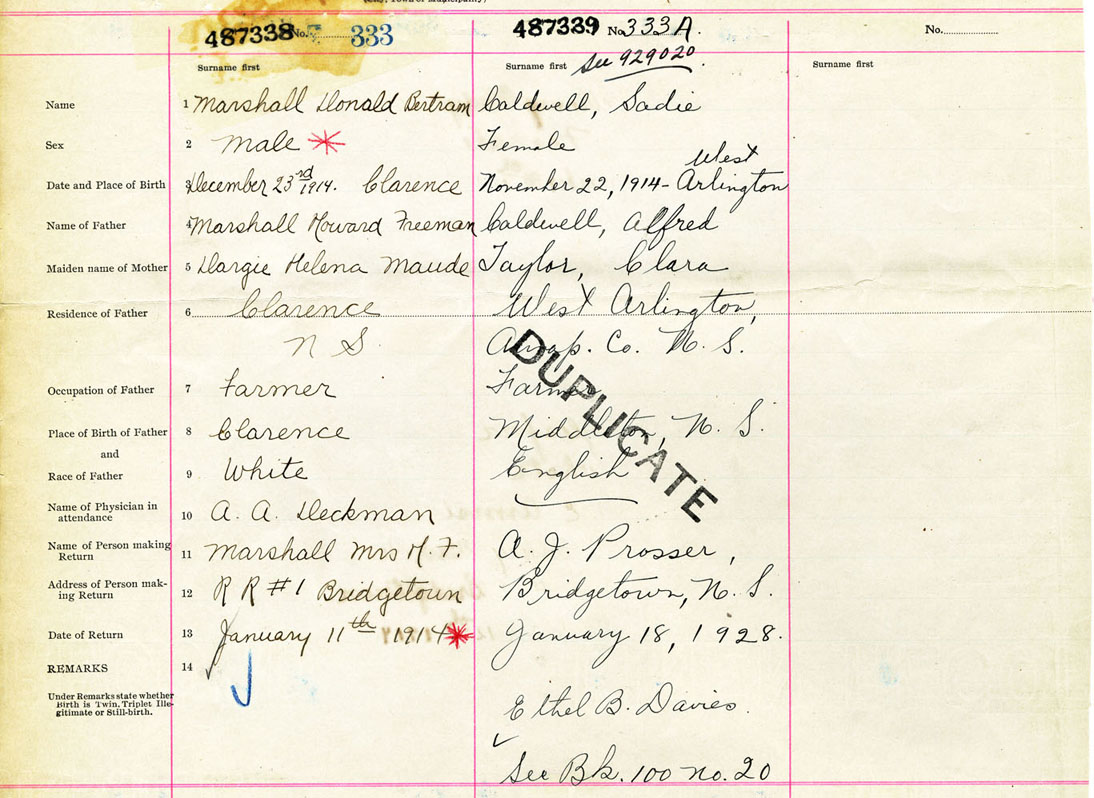 487338 No. 333
487339 No. 333A.
No.
Surname first
Surname first See 929020
Surname first
Name 1 Marshall Donald Bertram Caldwell, Sadie
Sex 2 Male Female
Date and Place of Birth 3 December 23rd 1914. Clarence November 22, 1914 - West Arlington
Name of Father 4 Marshall Howard Freeman Caldwell, Alfred
Maiden name of Mother 5 Dargie Helena Maude Taylor, Clara
Residence of Father 6 Clarence West Arlington,
N S. Annap. Co. N. S.
Occupation of Father 7 Farmer Farmer
Place of Birth of Father 8 Clarence Middleton, N. S.
and
Race of Father 9 White English
DUPLICATE
Name of Physician in
attendance 10 A. A. Deckman
Name of Person making
Return 11 Marshall Mrs H. F. A. J. Prosser,
Address of Person mak-
ing Return 12 R R #1 Bridgetown Bridgetown, N. S.
Date of Return 13 January 11th 1914 January 18, 1928.
REMARKS 14
Under Remarks state whether
Birth is Twin, Triplet Ille-
gitimate or Still-birth.
Ethel B. Davies.
See Bk. 100 no. 20